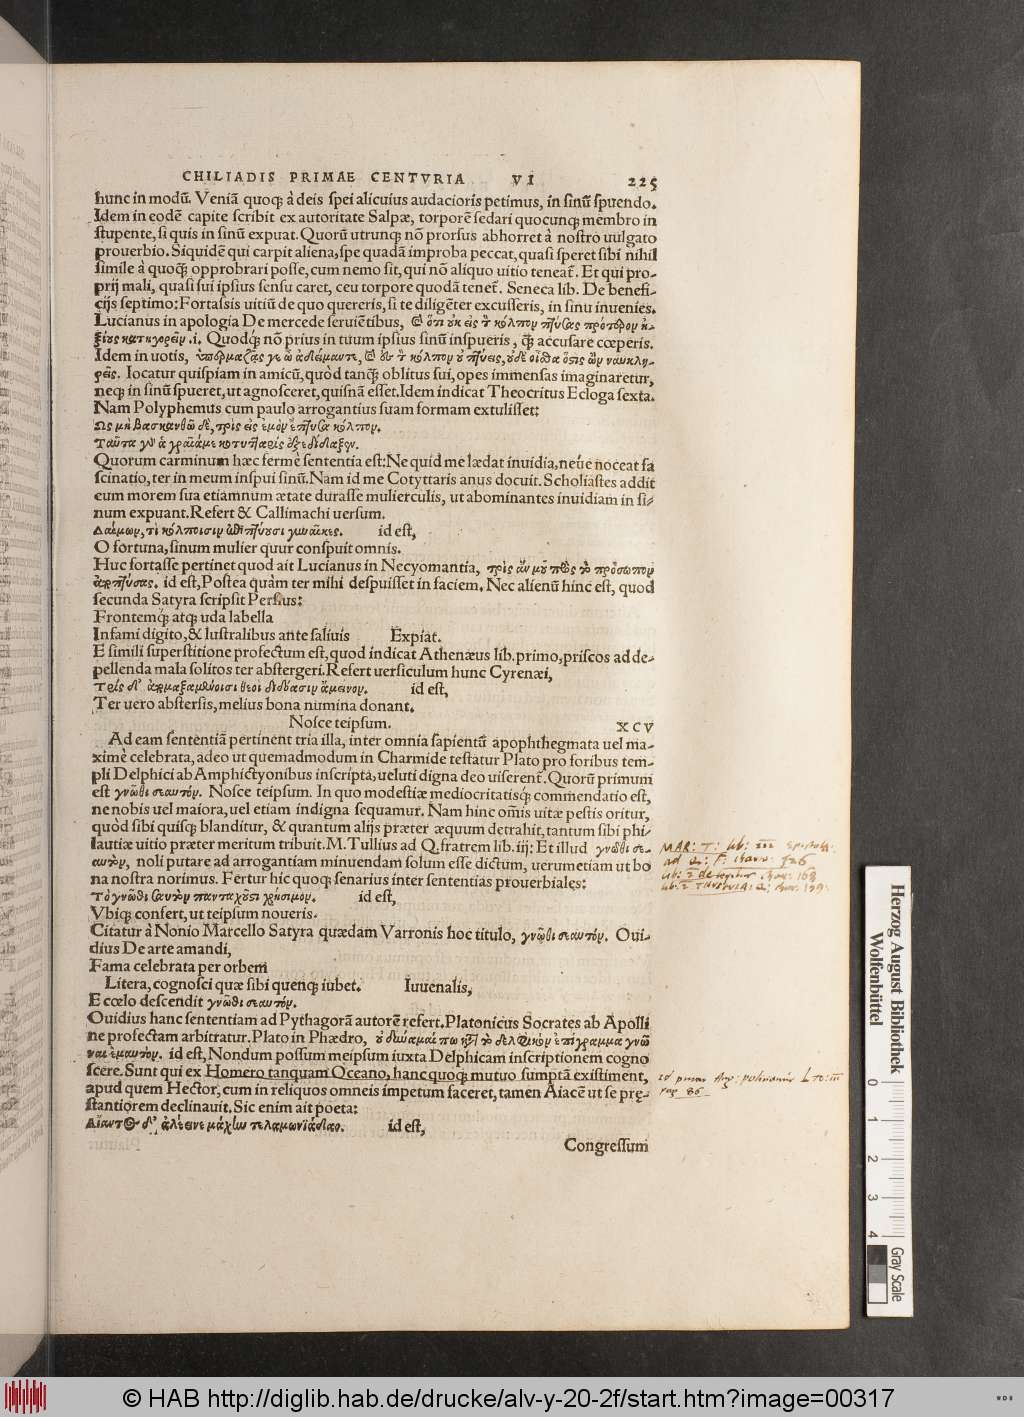 CHILIADIS PRIMAE CENTVRIA VI 225
hunc in modũ. Veniã quoqꝫ à deis spei alicuius audacioris petimus, in sinũ spuendo.
Idem in eodẽ capite scribit ex autoritate Salpæ, torporẽ sedari quocunqꝫ membro in
stupente, si quis in sinũ expuat. Quorũ utrunqꝫ nõ prorsus abhorret à nostro uulgato
prouerbio. Siquidẽ qui carpit aliena, spe quadã improba peccat, quasi speret sibi nihil
simile à quoqꝫ opprobrari posse, cum nemo sit, qui nõ aliquo uitio teneat̃. Et qui pro-
prij mali, quasi sui ipsius sensu caret, ceu torpore quodã tenet̃. Seneca lib. De benefi-
cijs septimo: Fortassis uitiũ de quo quereris, si te diligẽter excusseris, in sinu inuenies.
Lucianus in apologia De mercede seruiẽtibus, ὅτι οὐκ εἰς τ̀ κόλπον πτύσας πρότερον ἠ-
ξίους κατηγορεῖν .i. Quodqꝫ nõ prius in tuum ipsius sinũ inspueris, q̃ꝫ accusare cœperis.
Idem in uotis, ὑπέρμαζᾶς γε ὦ ἀδείμαντε, οὐ τ̀ κόλπον οὐ πτύεις, οὐδὲ οἶσθα ὅστις ὢν ναυκλη-
ρεῖς. Iocatur quispiam in amicũ, quòd tanqꝫ̃ oblitus sui, opes immensas imaginaretur,
neqꝫ in sinũ spueret, ut agnosceret, quisnã esset. Idem indicat Theocritus Ecloga sexta.
Nam Polyphemus cum paulo arrogantius suam formam extulisset:
Ὡς μὴ βασκανθῶ δὲ, τρὶς εἰς ἐμὸν ἔπτυσα κόλπον.
Ταῦτα γὰρ ἁ γραῖά με κοτυτταρὶς ἐξεδίδαξεν.
Quorum carminum hæc fermè sententia est: Ne quid me lædat inuidia, neúe noceat fa
scinatio, ter in meum inspui sinũ. Nam id me Cotyttaris anus docuit. Scholiastes addit
eum morem sua etiamnum ætate durasse mulierculis, ut abominantes inuidiam in si-
num expuant. Refert & Callimachi uersum.
Δαίμων, τὶ κόλποισιν ἐπιπτύουσι γυναῖκες. id est,
O fortuna, sinum mulier quur conspuit omnis.
Huc fortasse pertinet quod ait Lucianus in Necyomantia, τρὶς ἄν μου πρὸς τὸ πρόσωπον
ἀποπτύσας. id est, Postea quàm ter mihi despuisset in faciem. Nec alienũ hinc est, quod
secunda Satyra scripsit Persius:
Frontemqꝫ́ atqꝫ uda labella
Infami digito, & lustralibus ante saliuis Expiat.
E simili superstitione profectum est, quod indicat Athenæus lib. primo, priscos ad de-
pellenda mala solitos ter abstergeri. Refert uersiculum hunc Cyrenæi,
Τρὶς δ' ἀπομαξαμένοισι θεοὶ διδόασιν ἄμεινον. id est,
Ter uero abstersis, melius bona numina donant.
Nosce teipsum. XCV
Ad eam sententiã pertinent tria illa, inter omnia sapientũ apophthegmata uel ma-
ximè celebrata, adeo ut quemadmodum in Charmide testatur Plato pro foribus tem-
pli Delphici ab Amphictyonibus inscripta, ueluti digna deo uiserent̃. Quorũ primum
est γνῶθι σεαυτόν. Nosce teipsum. In quo modestiæ mediocritatisqꝫ́ commendatio est,
ne nobis uel maiora, uel etiam indigna sequamur. Nam hinc om̃is uitæ pestis oritur,
quòd sibi quisqꝫ blanditur, & quantum alijs præter æquum detrahit, tantum sibi phi-
lautiæ uitio præter meritum tribuit. M. Tullius ad Q. fratrem lib. iij: Et illud γνῶθι σε-
αυτὸν, noli putare ad arrogantiam minuendam solum esse dictum, uerumetiam ut bo
na nostra norimus. Fertur hic quoqꝫ senarius inter sententias prouerbiales:
Τὸ γνῶθι σαυτὸν πανταχοῦ 'στι χρήσιμον. id est,
Vbiqꝫ confert, ut teipsum noueris.
Citatur à Nonio Marcello Satyra quædam Varronis hoc titulo, γνῶθι σεαυτόν. Oui-
dius De arte amandi,
Fama celebrata per orbem
Litera, cognosci quæ sibi quenqꝫ iubet. Iuuenalis,
E cœlo descendit γνῶθι σεαυτόν.
Ouidius hanc sententiam ad Pythagorã autorẽ refert. Platonicus Socrates ab Apolli
ne profectam arbitratur. Plato in Phædro, οὐ δύναμαί πω κατὰ τὸ δελφικὸν ἐπίγραμμα γνῶ
ναι ἐμαυτόν. id est, Nondum possum meipsum iuxta Delphicam inscriptionem cogno
scere. Sunt qui ex Homero tanquam Oceano, hanc quoqꝫ mutuo sumptã existiment,
apud quem Hector, cum in reliquos omneis impetum faceret, tamen Aiacẽ ut se præ-
stantiorem declinauit. Sic enim ait poeta:
Αἴαντος δ' ἀλέεινε μάχην τελαμωνιάδαο. id est,
Congressum
MAR: T: lib: III Epistola
ad Q: F: 
Herzog August Bibliothek
Wolfenbüttel
0 1 2 3 4
Gray Scale
© HAB http://diglib.hab.de/drucke/alv-y-20-2f/start.htm?image=00317